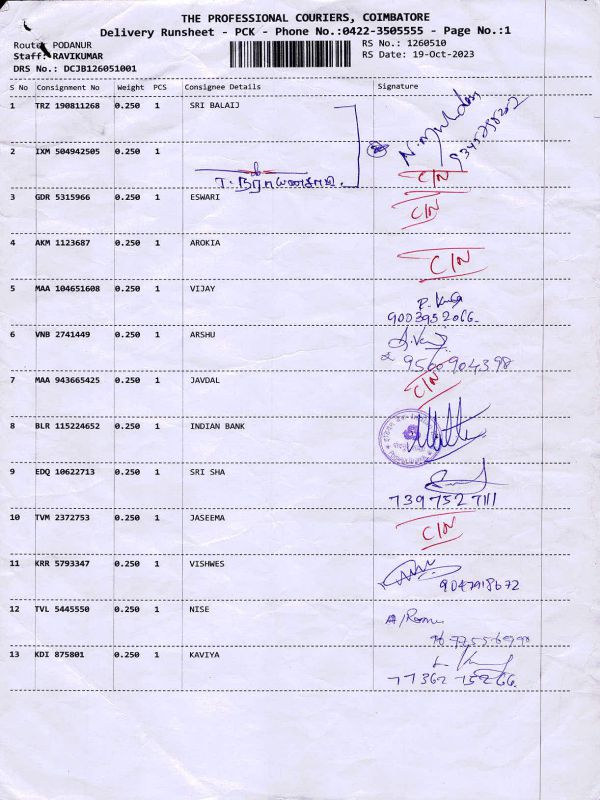 THE PROFESSIONAL COURIERS, COIMBATORE
Delivery Runsheet - PCK - Phone No.:0422-3505555 - Page No.:1
Route: PODANUR
RS No.: 1260510
Staff: RAVIKUMAR
RS Date: 19-Oct-2023
DRS No.: DCJB126051001
S No Consignment No Weight PCS Consignee Details Signature
1 TRZ 190811268 0.250 1 SRI BALAIJ
2 IXM 504942505 0.250 1 C/N
3 GDR 5315966 0.250 1 ESWARI C/N
4 AKM 1123687 0.250 1 AROKIA C/N
5 MAA 104651608 0.250 1 VIJAY
9003952066.
6 VNB 2741449 0.250 1 ARSHU
7 MAA 943665425 0.250 1 JAVDAL C/N
8 BLR 115224652 0.250 1 INDIAN BANK
9 EDQ 10622713 0.250 1 SRI SHA
7397527111
10 TVM 2372753 0.250 1 JASEEMA C/N
11 KRR 5793347 0.250 1 VISHWES
12 TVL 5445550 0.250 1 NISE
13 KDI 875801 0.250 1 KAVIYA
77362 75266.